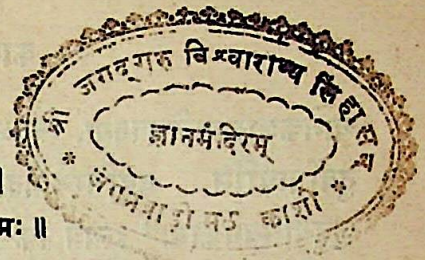 श्री जगद्गुरु विश्वाराध्य सिंहासन
ज्ञानमंदिरम्
* जंगमवाडी मठ काशी *
मः ॥